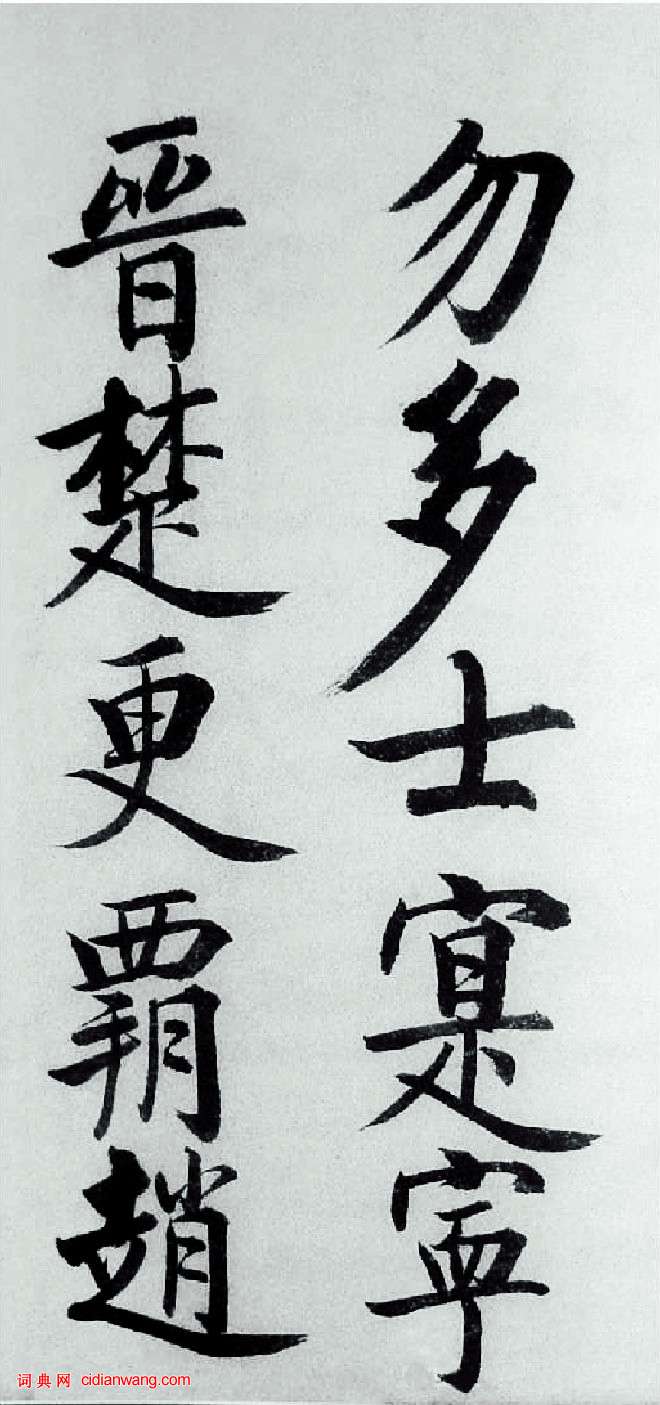 勿多士寔寧
晉楚更覇趙
词典网 cidianwang.com